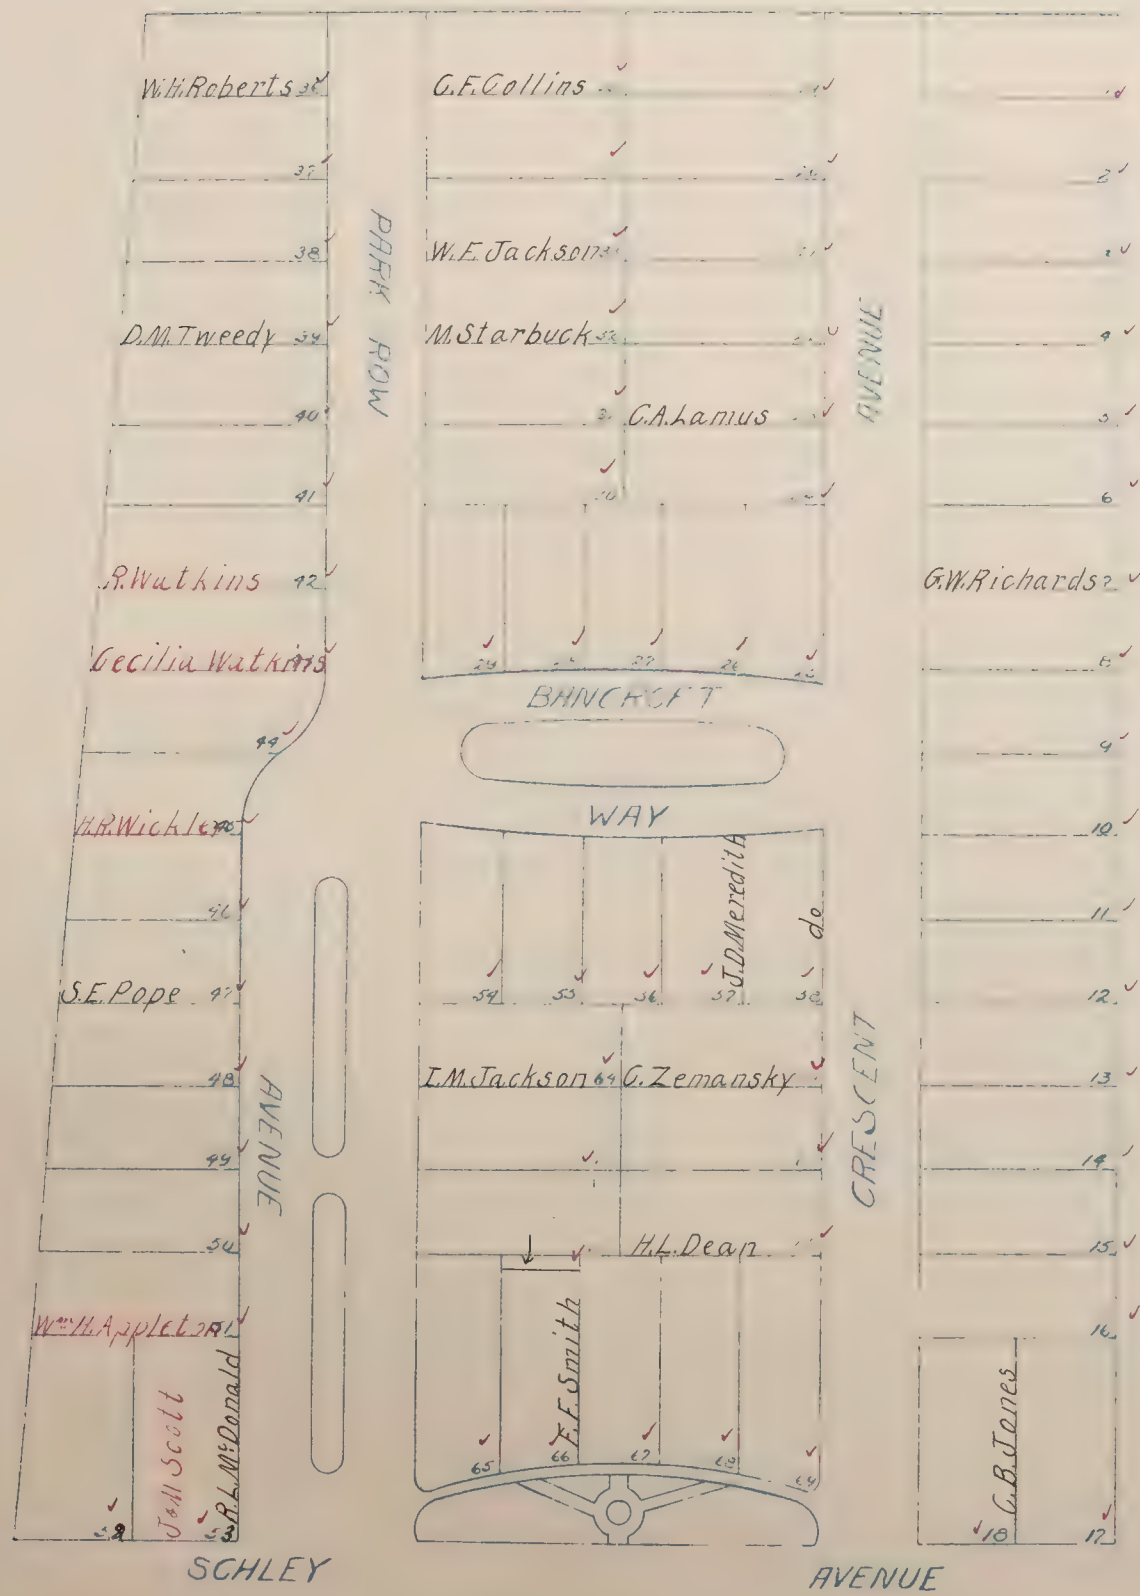 W.H.Roberts 36
37
38
D.M.Tweedy 39
40
41
R.Watkins 42
Cecilia Watkins
44
H.R.Wickler
46
S.E.Pope 47
48
49
50
Wm H.Appleton 51
52
J&M Scott 53
R.L.McDonald
PARK ROW
AVENUE
C.F.Collins
W.E.Jackson
M.Starbuck 32
C.A.Lamus
30
29 27 26
BANCROFT
WAY
J.D.Meredith
do
54 55 56 57 58
I.M.Jackson 64 C.Zemansky
H.L.Dean
E.F.Smith
65 66 67 68 69
AVENUE
CRESCENT
2
4
5
6
G.W.Richards
8
9
10
11
12
13
14
15
16
C.B.Jones
18 17
SCHLEY AVENUE